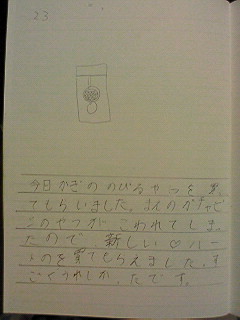 23
今日かぎののびるやつを買っ
てもらいました。まえのガチャピ
このやつが こわれてしまっ
たので、新しい♡ハー
トのを買てもらえました。す
ごくうれしか たです。